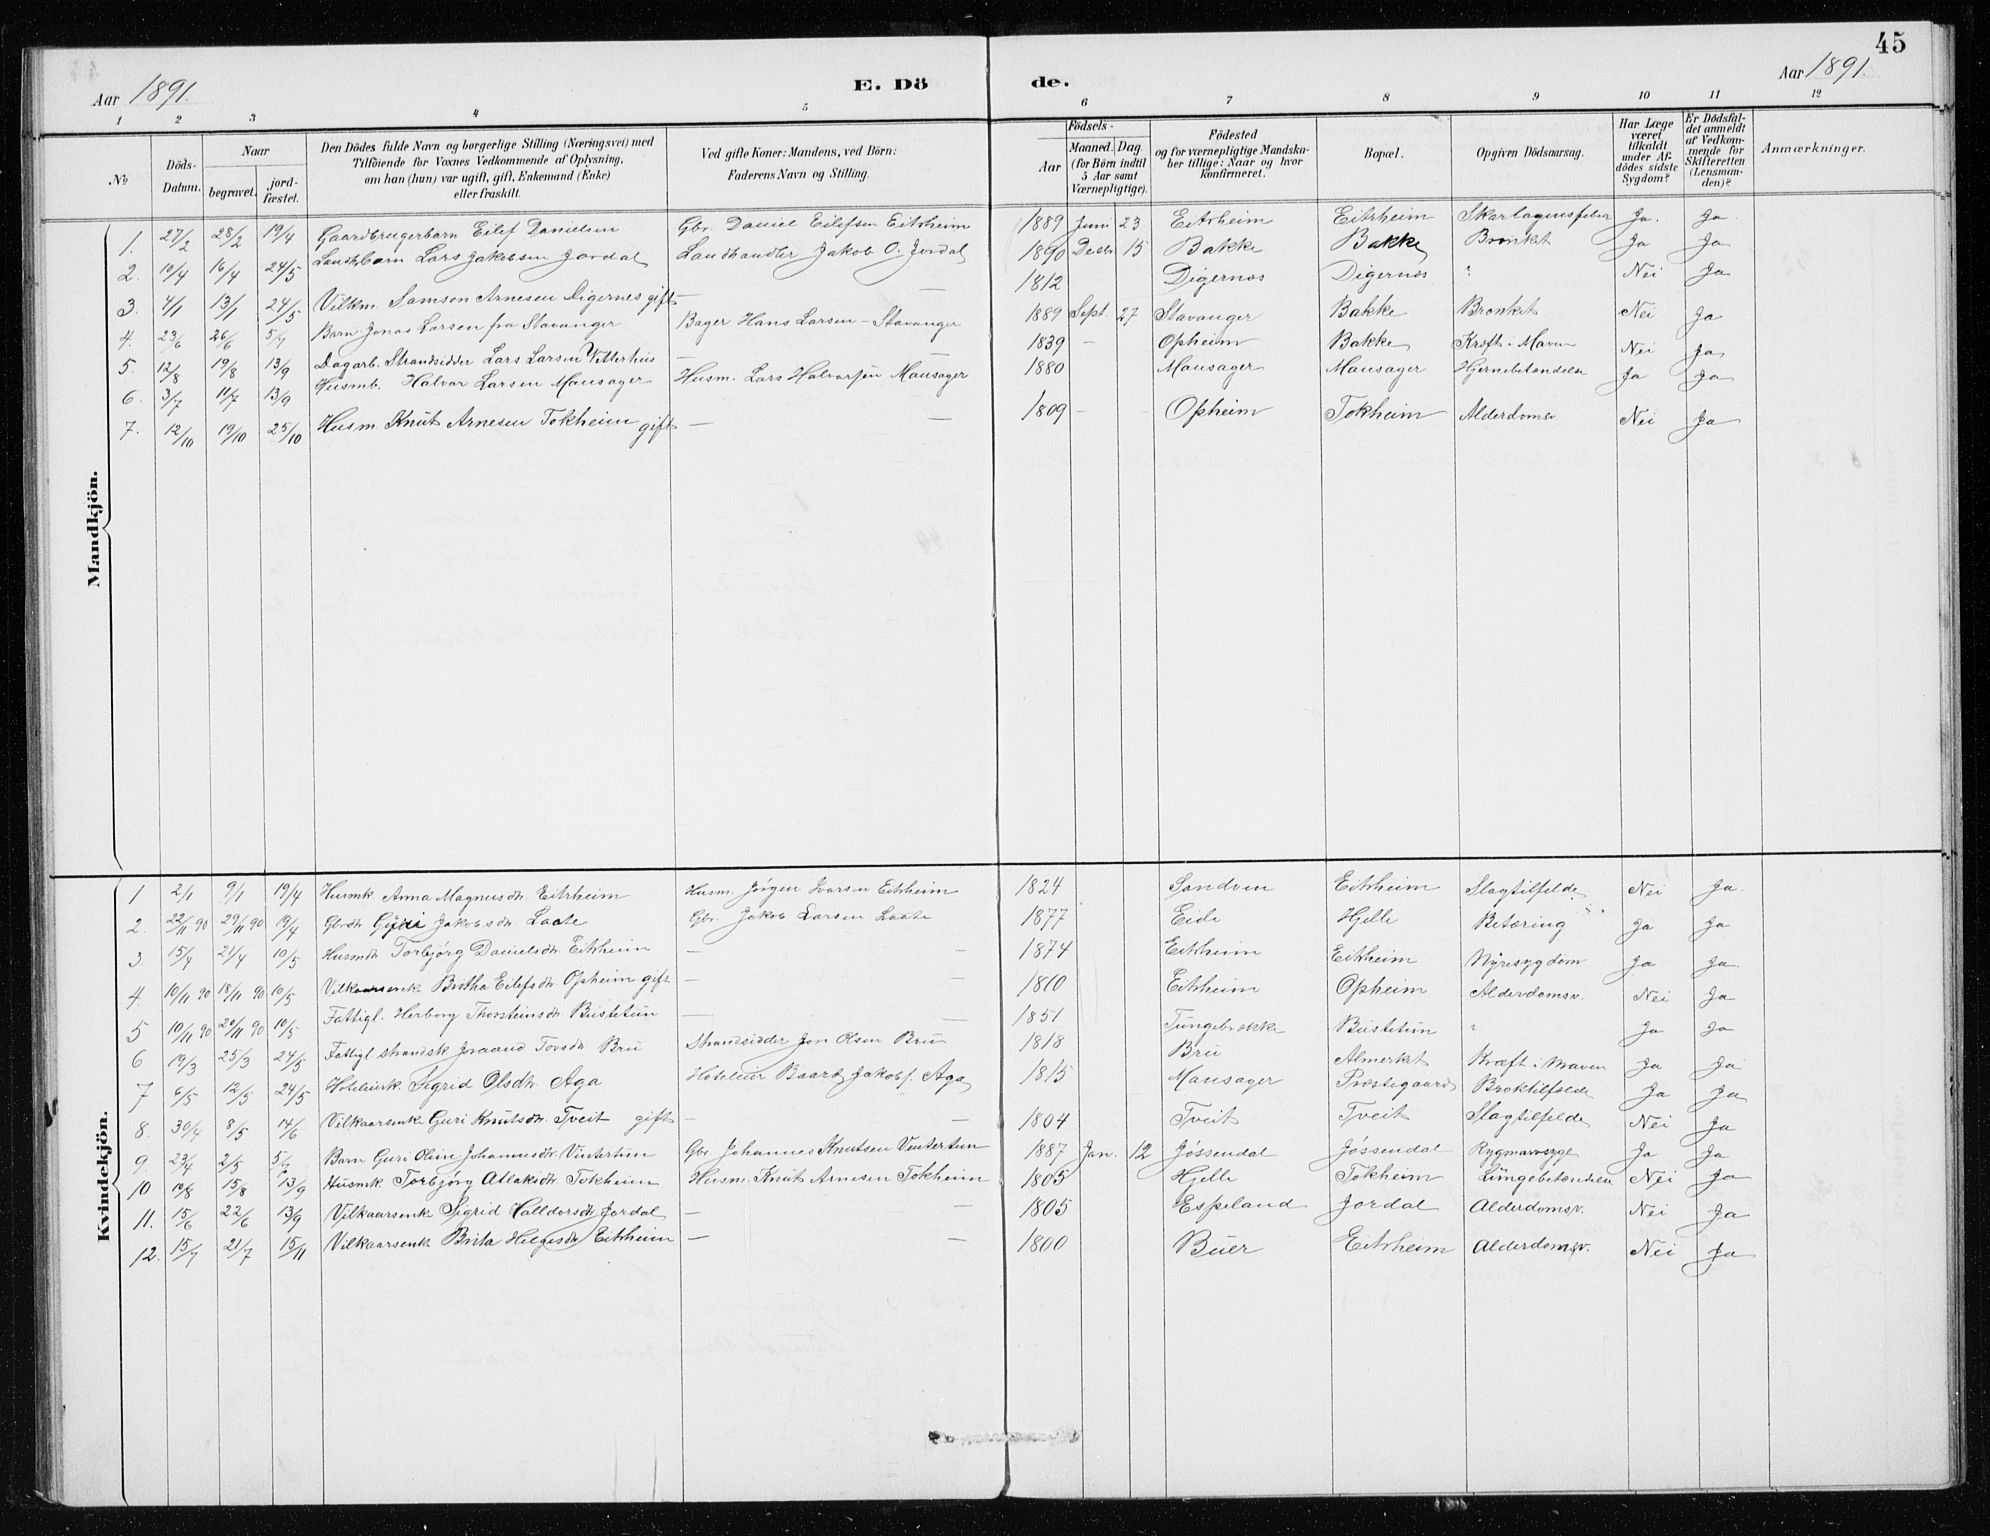 45
Aar 1891. E. Dö de. Aar 1891.
1 2 3 4 5 6 7 8 9 10 11 12
№ Döds-Datum. Naar begravet. jordfæstet. Den Dödes fulde Navn og borgerlige Stilling (Næringsvei) med Tilföiende for Voxnes Vedkommende af Oplysning, om han (hun) var ugift, gift, Enkemand (Enke) eller fraskilt. Ved gifte Koner: Mandens, ved Börn: Faderens Navn og Stilling. Födsels- Aar Maaned. Dag. (for Börn indtil 5 Aar samt Værnepligtige). Födested og for værnepligtige Mandskaber tillige: Naar og hvor konfirmeret. Bopæl. Opgiven Dödsaarsag. Har Læge været tilkaldt under Afdödes sidste Sygdom? Er Dödsfaldet anmeldt af Vedkommende for Skifteretten (Lensmanden)? Anmærkninger.
Mandkjön.
1. 27/2 28/2 19/4 Gaardbrugerbarn Eilef Danielsen Gbr. Daniel Eilefsen Eitrheim 1889 Juni 23 Eitrheim Eitrheim Skarlagensfeber Ja. Ja
2. 10/4 16/4 24/5 Landhbarn Lars Jakobsen Jordal Landhandler Jakob O. Jordal 1890 Decbr 15 Bakke Bakke Bronkit Ja Ja
3. 4/1 13/1 24/5 Vilkm. Samson Arnesen Digernes gift — — 1812 Digernes Digernes ? Nei Ja
4. 23/6 26/6 5/7 Barn Jonas Larsen fra Stavanger Bager Hans Larsen - Stavanger 1889 Sept. 27 Stavanger Bakke Bronkit Nei Ja
5. 12/8 19/8 13/9 Dagarb. Strandsidder Lars Larsen Vetterhus — — 1839 — Opheim Bakke Kræft i Maven Nei Ja
6. 3/7 11/7 13/9 Husmb. Halvor Larsen Mansager Husm. Lars Halvorsen Mansager 1880 Mansager Mansager Hjernebetændelse Ja Ja
7. 12/10 19/10 25/10 Husm. Knut Arnesen Tokheim gift — — 1809 — Opheim Tokheim Alderdomsv. Nei Ja
Kvindekjön.
1 2/1 9/1 19/4 Husmk Anna Magnusdr. Eitrheim Husm. Jörgen Ivarsen Eitrheim 1824 Sandven Eitrheim Slagtilfelde Nei Ja.
2. 22/11 90 29/11 90 19/4 Gbrdr. Guri Jakobsdr. Laate Gbr. Jakob Larsen Laate 1877 Eide Hjelle Betæring Ja Ja
3. 15/4 21/4 10/5 Husmdr Torbjørg Danielsdr. Eitrheim — — 1874 Eitrheim Eitrheim Nyresygdom Ja Ja
4. 10/11 90 18/11 90 10/5 Vilkaarsenk Britha Eilefsdr. Opheim gift — — 1810 Eitrheim Opheim Alderdomsv. Nei Ja
5 10/11 90 20/11 90 10/5 Fattigl. Herborg Thorsteinsdr. Bustetun — — 1851 Tungebrekke Bustetun ? Ja Ja
6 19/3 25/3 24/5 Fattigl strandsk Joraand Torsdr. Bru Strandsidder Jon Olsen Bru 1818 Bru Almerket Kræft i Maven Ja Ja
7 6/5 12/5 24/5 Hoteleierk. Sigrid Olsdr. Aga Hoteleier Baard Jakobs. Aga 1815 Mansager Præstegaard Broktilfælde Ja Ja
8. 30/4 8/5 14/6 Vilkaarsenk Guri Knutsdr. Tveit gift — — 1804 Tveit Tveit Slagtilfelde Nei Ja
9. 23/4 2/5 5/7 Barn Guri Oline Johannesdr. Vintertun Gbr. Johannes Knutsen Vintertun 1887 Jan. 12 Jøssendal Jøssendal Rygmarvssyge Ja Ja
10 10/8 15/8 13/9 Husmk. Torbjørg Atlaksdr. Tokheim Husm. Knut Arnesen Tokheim 1805 Hjelle Tokheim Lungebetændelse Nei Ja
11. 15/6 22/6 13/9 Vilkaarsenk Sigrid Halldorsdr. Jordal — — 1805 Espeland Jordal Alderdomsv. Nei Ja
12. 15/7 21/7 15/11 Vilkaarsenk Brita Helgesdr. Eitrheim — — 1800 Buer Eitrheim Alderdomsv. Nei Ja